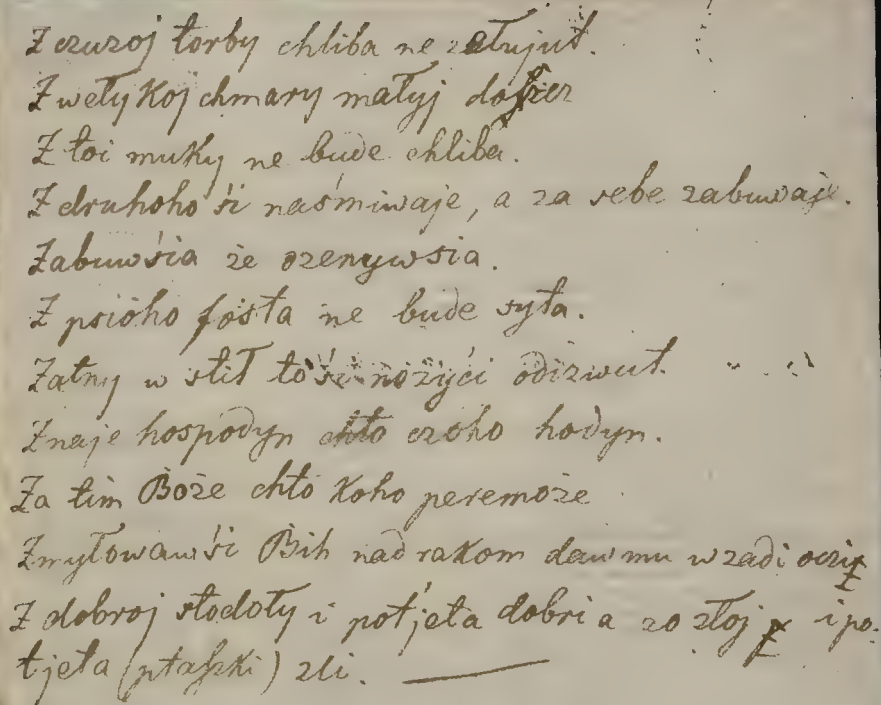 Z czuzoj torby chliba ne
Z wełykoj chmary małyj doſzcz
Z toi muky ne bude chliba.
Z druhoho śi naśmiwaje, a za sebe zabuwaje.
Zabuwśia że ozenywsia.
Z psioho fosta ne bude syta.
Zatny w stił to śi nożyći odizwut.
Znaje hospodyn chto czoho hodyn.
Za tim Boże chto koho peremoże
Zmyłowawśi Bih nad rakom daw mu wzadi oczi
Z dobroj stodoły i potjeta dobri a zo złoj i po-
tjeta (ptaſzki) zli.